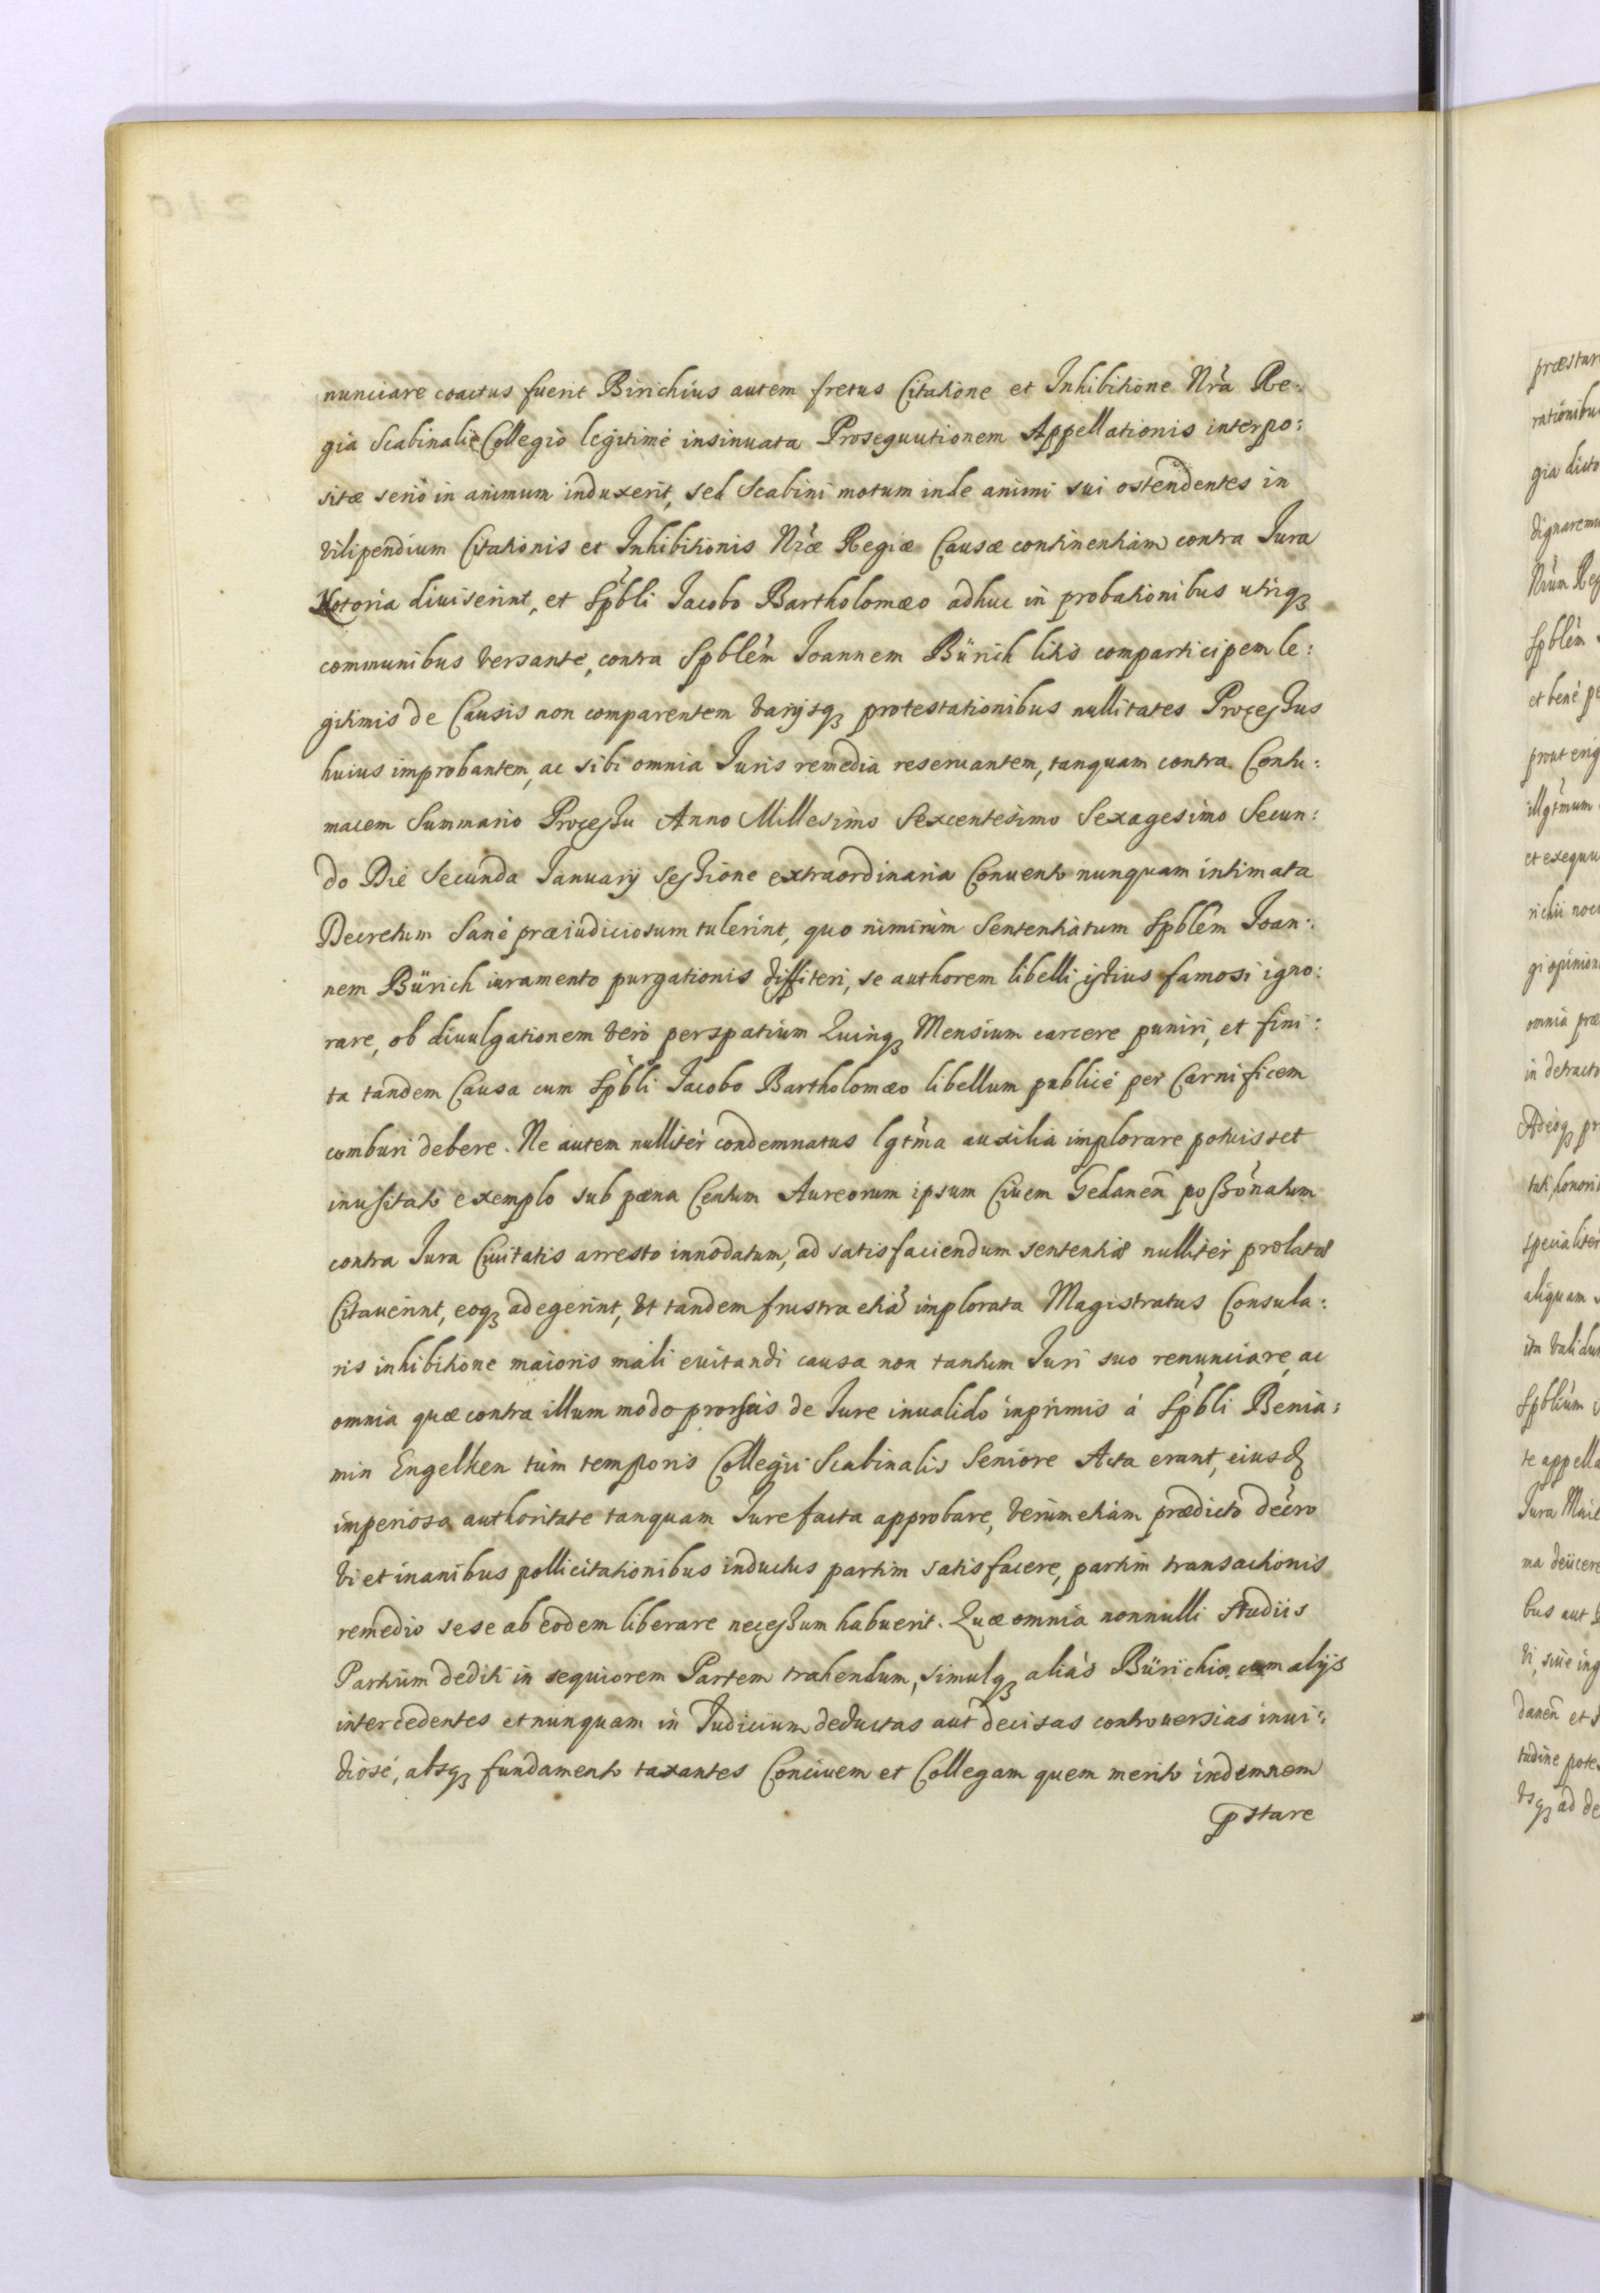 nunciare coactus fuerit Birichius autem fretus Citatione et Inhibitione Nr̃a Re:
gia Scabinali Collegio legitimè insinuata Prosequutionem Appellationis interpo:
sitæ seriò in animum induxerit, sed Scabini motum inde animi sui ostendentes in
vilipendium Citationis et Inhibitionis Nr̃æ Regiæ Causæ continentiam contra Jura
Notoria diuiserint, et Spb̃li Jacobo Bartholomæo adhuc in probationibus utriqꝫ
communibus versante, contra Spblem̃ Joannem Bürich litis comparticipem le:
gitimis de Causis non comparentem varijsqꝫ protestationibus nullitates Processus
huius improbantem, ac sibi omnia Juris remedia reseruantem, tanquam contra Contu:
macem Summario Processu Anno Millesimo Sexcentesimo Sexagesimo Secun:
do Die Secunda January Sessione extraordinaria Conuento nunquam intimata
Decretum Sanè præiudiciosum tulerint, quo nimirùm Sententiatum Spblem̃ Joan:
nem Bürich iuramento purgationis diffiteri, se authorem libelli istius famosi igno:
rare, ob diuulgationem verò per spatium Quinqꝫ Mensium carcere puniri, et fini:
ta tandem Causa cum Spb̃li Jacobo Bartholomæo libellum publicè per Carnificem
comburi debere. Ne autem nulliter condemnatus lgtm̃a auxilia implorare potuisset
inusitato exemplo sub pæna Centum Aureorum ipsum Ciuem Gedaneñ possõnatum
contra Jura Ciuitatis arresto innodatum, ad satisfaciendum sententiæ nulliter prolatæ
Citauerint, eoqꝫ adegerint, vt tandem frustra etiã implorata Magistratus Consula:
ris inhibitione maioris mali euitandi causa non tantum Juri suo renunciare, ac
omnia quæ contra illum modo prorsùs de Jure inualido inprimis à Spb̃li Benia:
min Engelken tùm temporis Collegii Scabinalis Seniore Acta erant, eiusdꝫ
imperiosa authoritate tanquam Jure facta approbare, verùm etiàm prædicto decr̃o
vi et inanibus pollicitationibus inductus partim satisfacere, partim transactionis
remedio sese ab eodem liberare necessum habuerit. Quæ omnia nonnulli Studiis
Partium dediti in sequiorem Partem trahendum, simulqꝫ aliàs Bürichio cum alijs
intercedentes et nunquam in Judicium deductas aut decisas controuersias inui:
diosè, absqꝫ fundamento taxantes Conciuem et Collegam quem merito indemnem
p̃stare